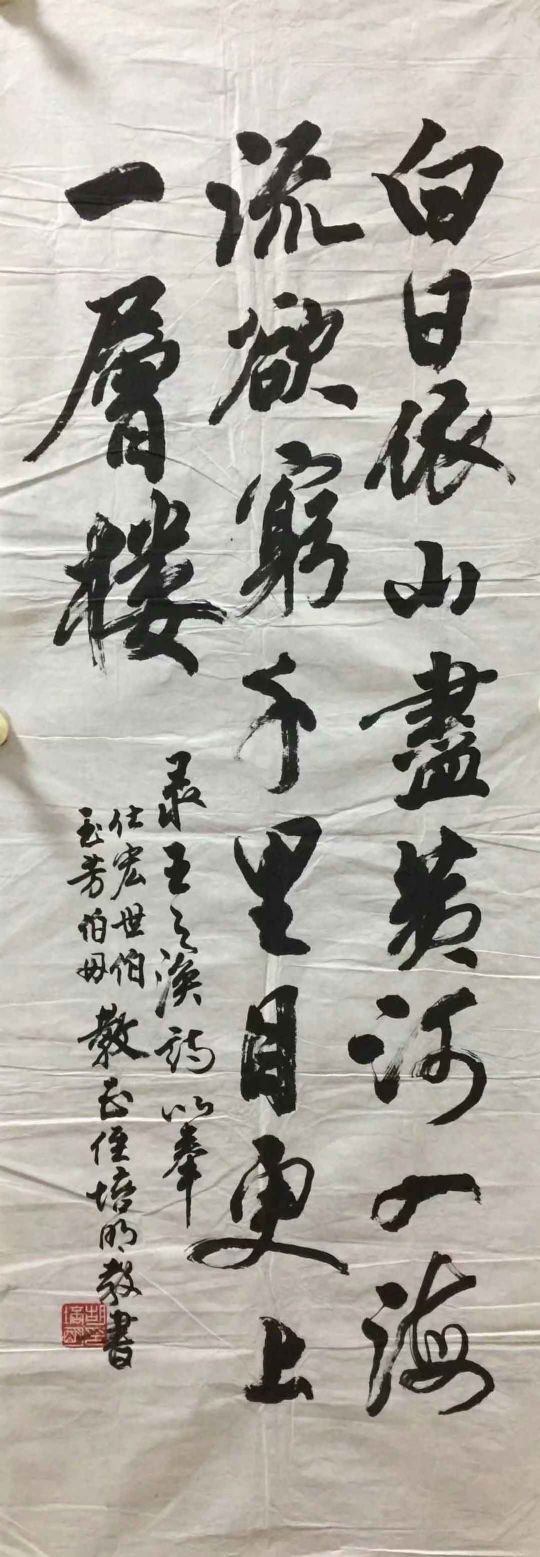 白日依山盡黄河入海
流欲窮千里目更上
一層楼
录王之涣诗以奉
仕宏世伯
玉芳伯母
教正侄培明敬書